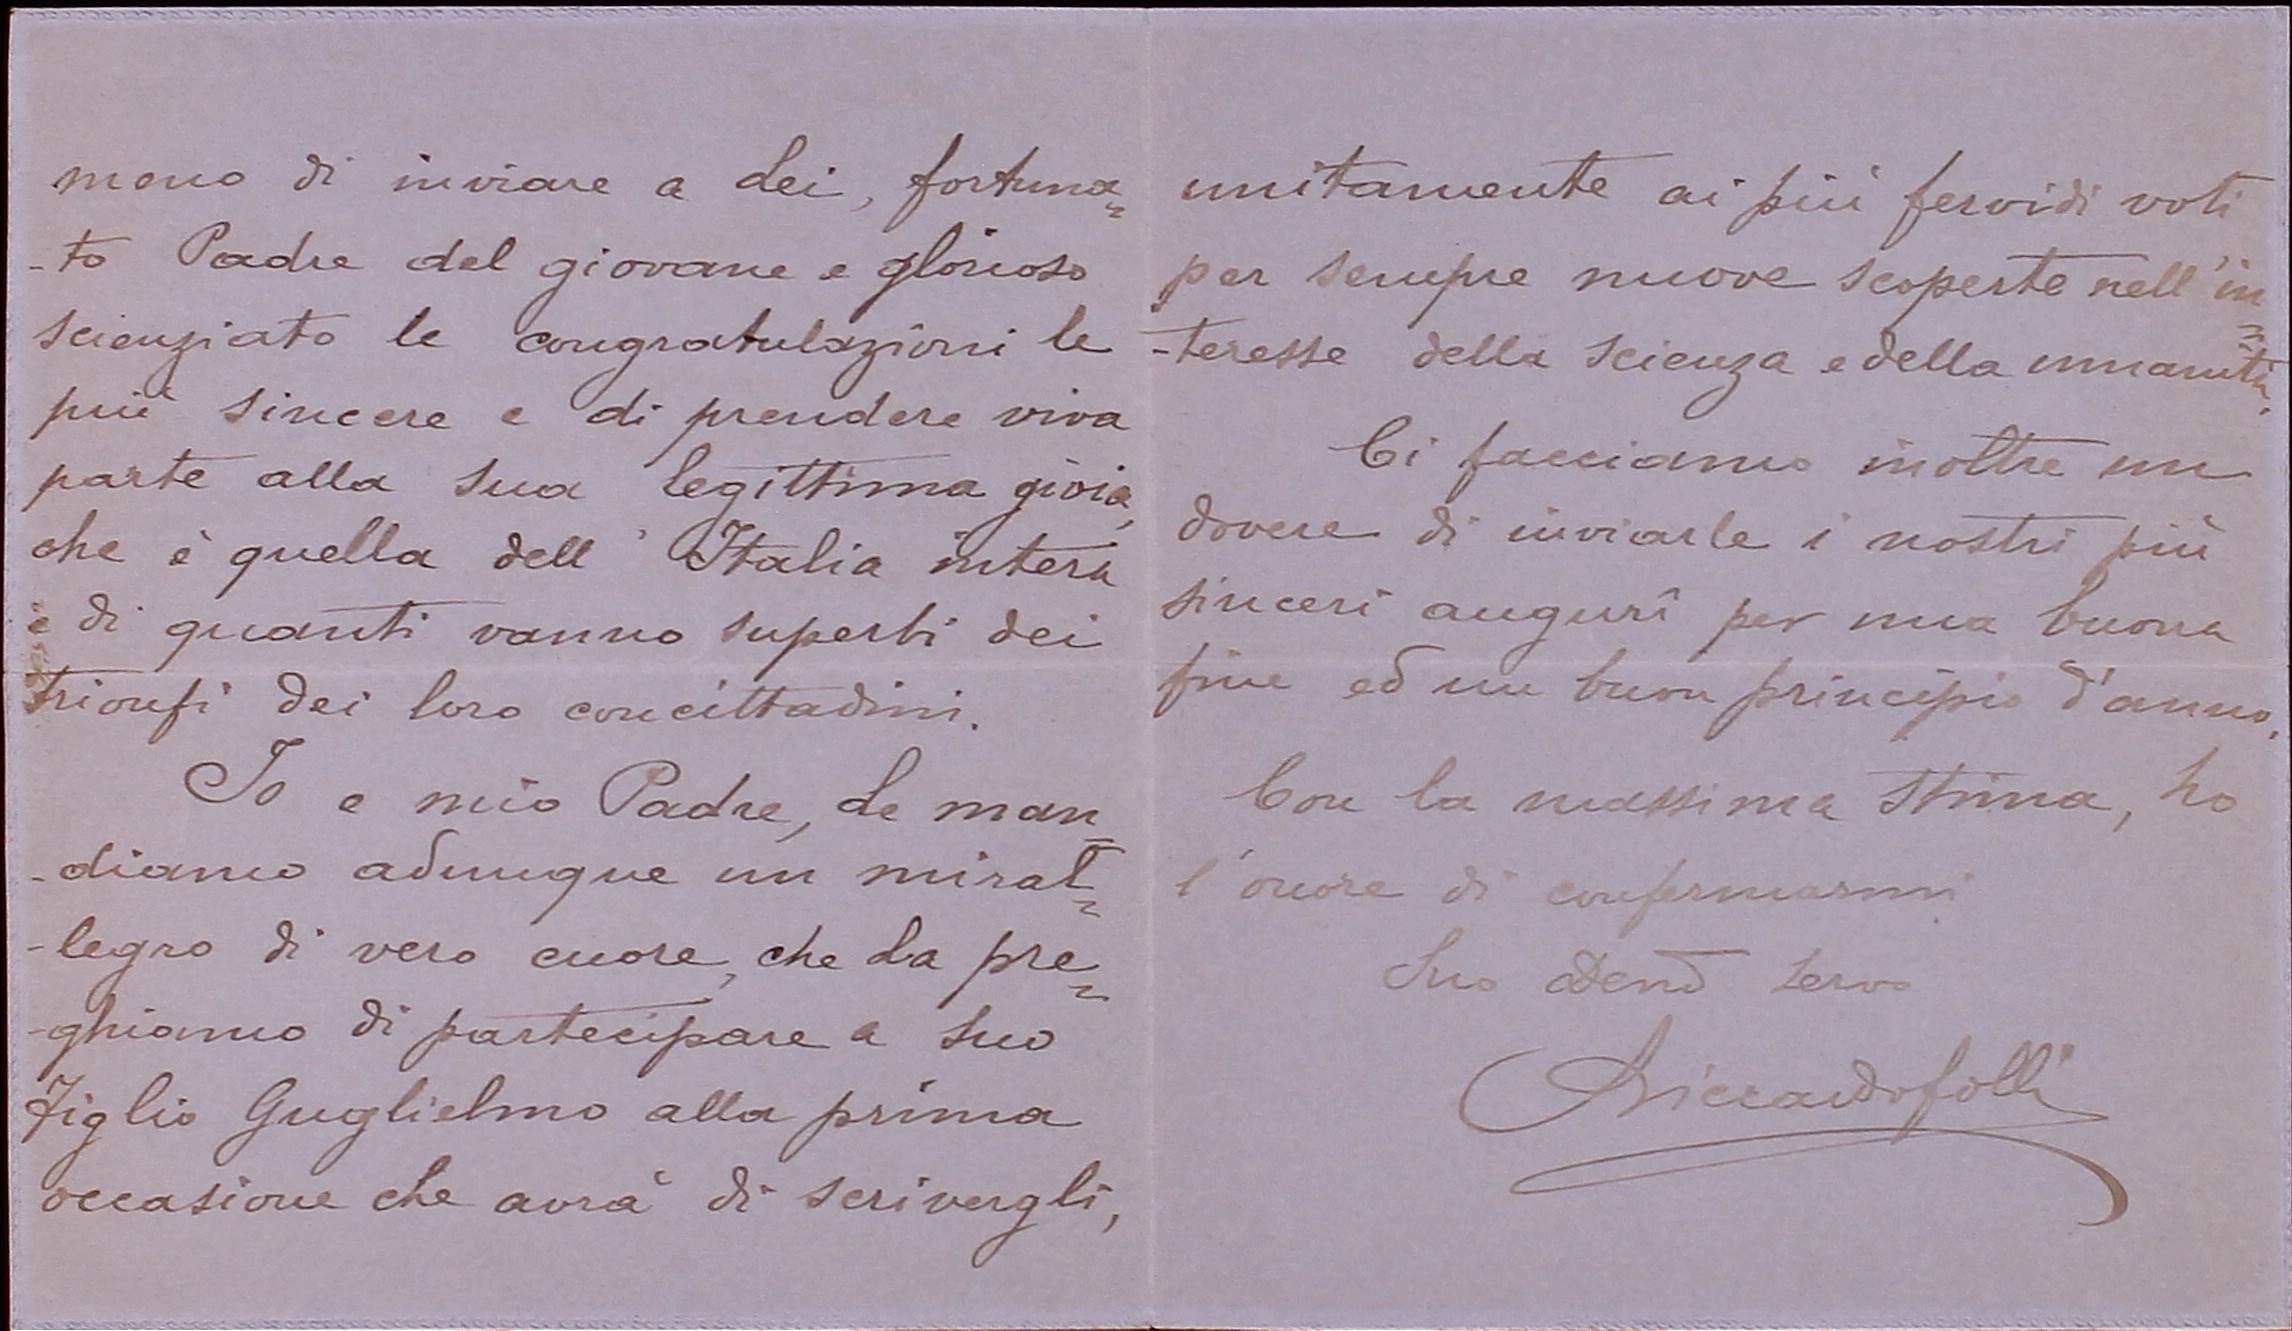 meno di inviare a Lei, fortuna=
-to Padre del giovane e glorioso
scienziato le congratulazioni le
più sincere e di prendere viva
parte alla sua legittima gioia,
che è quella dell'Italia intera
e di quanti vanno superbi dei
trionfi dei loro concittadini.
Io e mio Padre, Le man=
-diamo adunque un miral=
-legro di vero cuore, che La pre=
-ghiamo di partecipare a Suo
Figlio Guglielmo alla prima
occasione che avrà di scrivergli,
unitamente ai più fervidi voti
per sempre nuove scoperte nell'in=
-teresse della scienza e della umanità.
Ci facciamo inoltre un
dovere di inviarle i nostri più
sinceri augurî per una buona
fine ed un buon principio d'anno.
Con la massima stima, ho
l'onore di confermarmi
Suo servo
Riccardo Folli